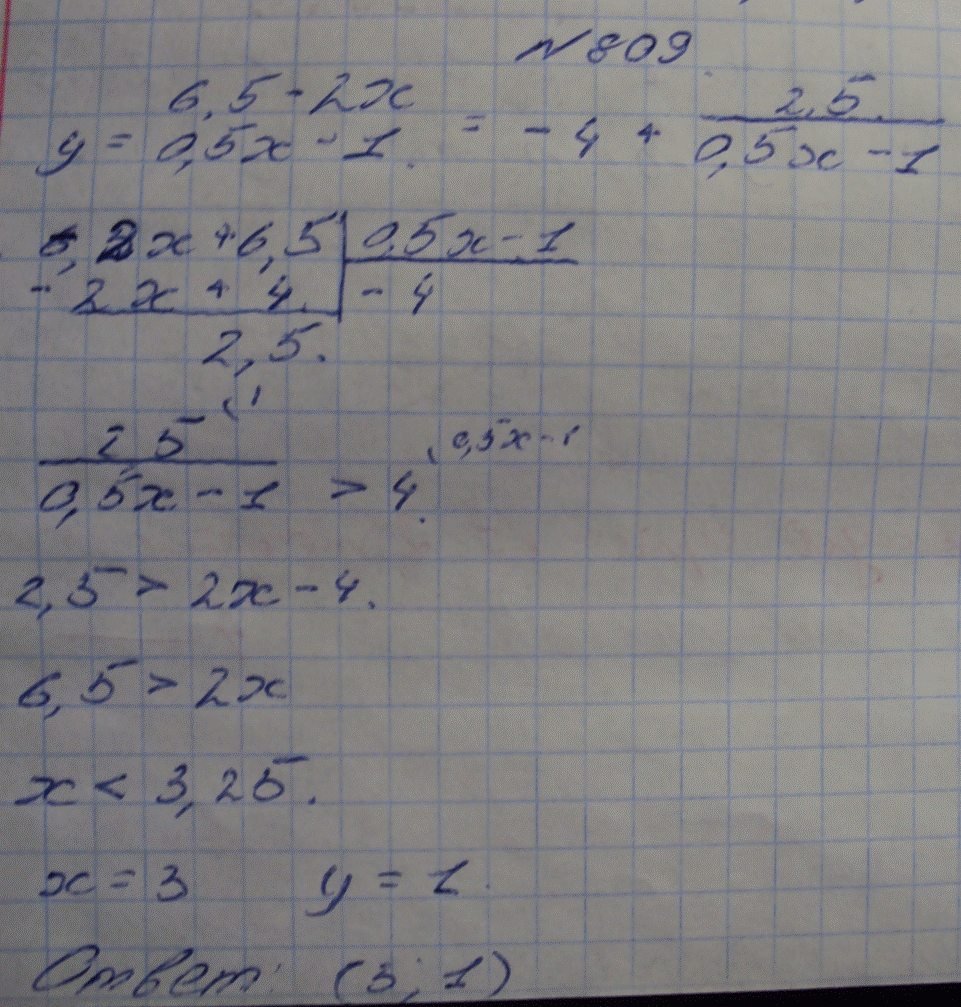 N 809.
6,5 - 2x
y = 0,5x - 1. = - 4 + 2,5 / 0,5x - 1
2x + 6,5 | 0,5x - 1
- 2x + 4. | - 4
2,5.
2 5 / 0,5x - 1 (1 > 4. (0,5x - 1
2,5 > 2x - 4.
6,5 > 2x
x < 3,25.
x = 3 y = 1.
Ответ: (3; 1)